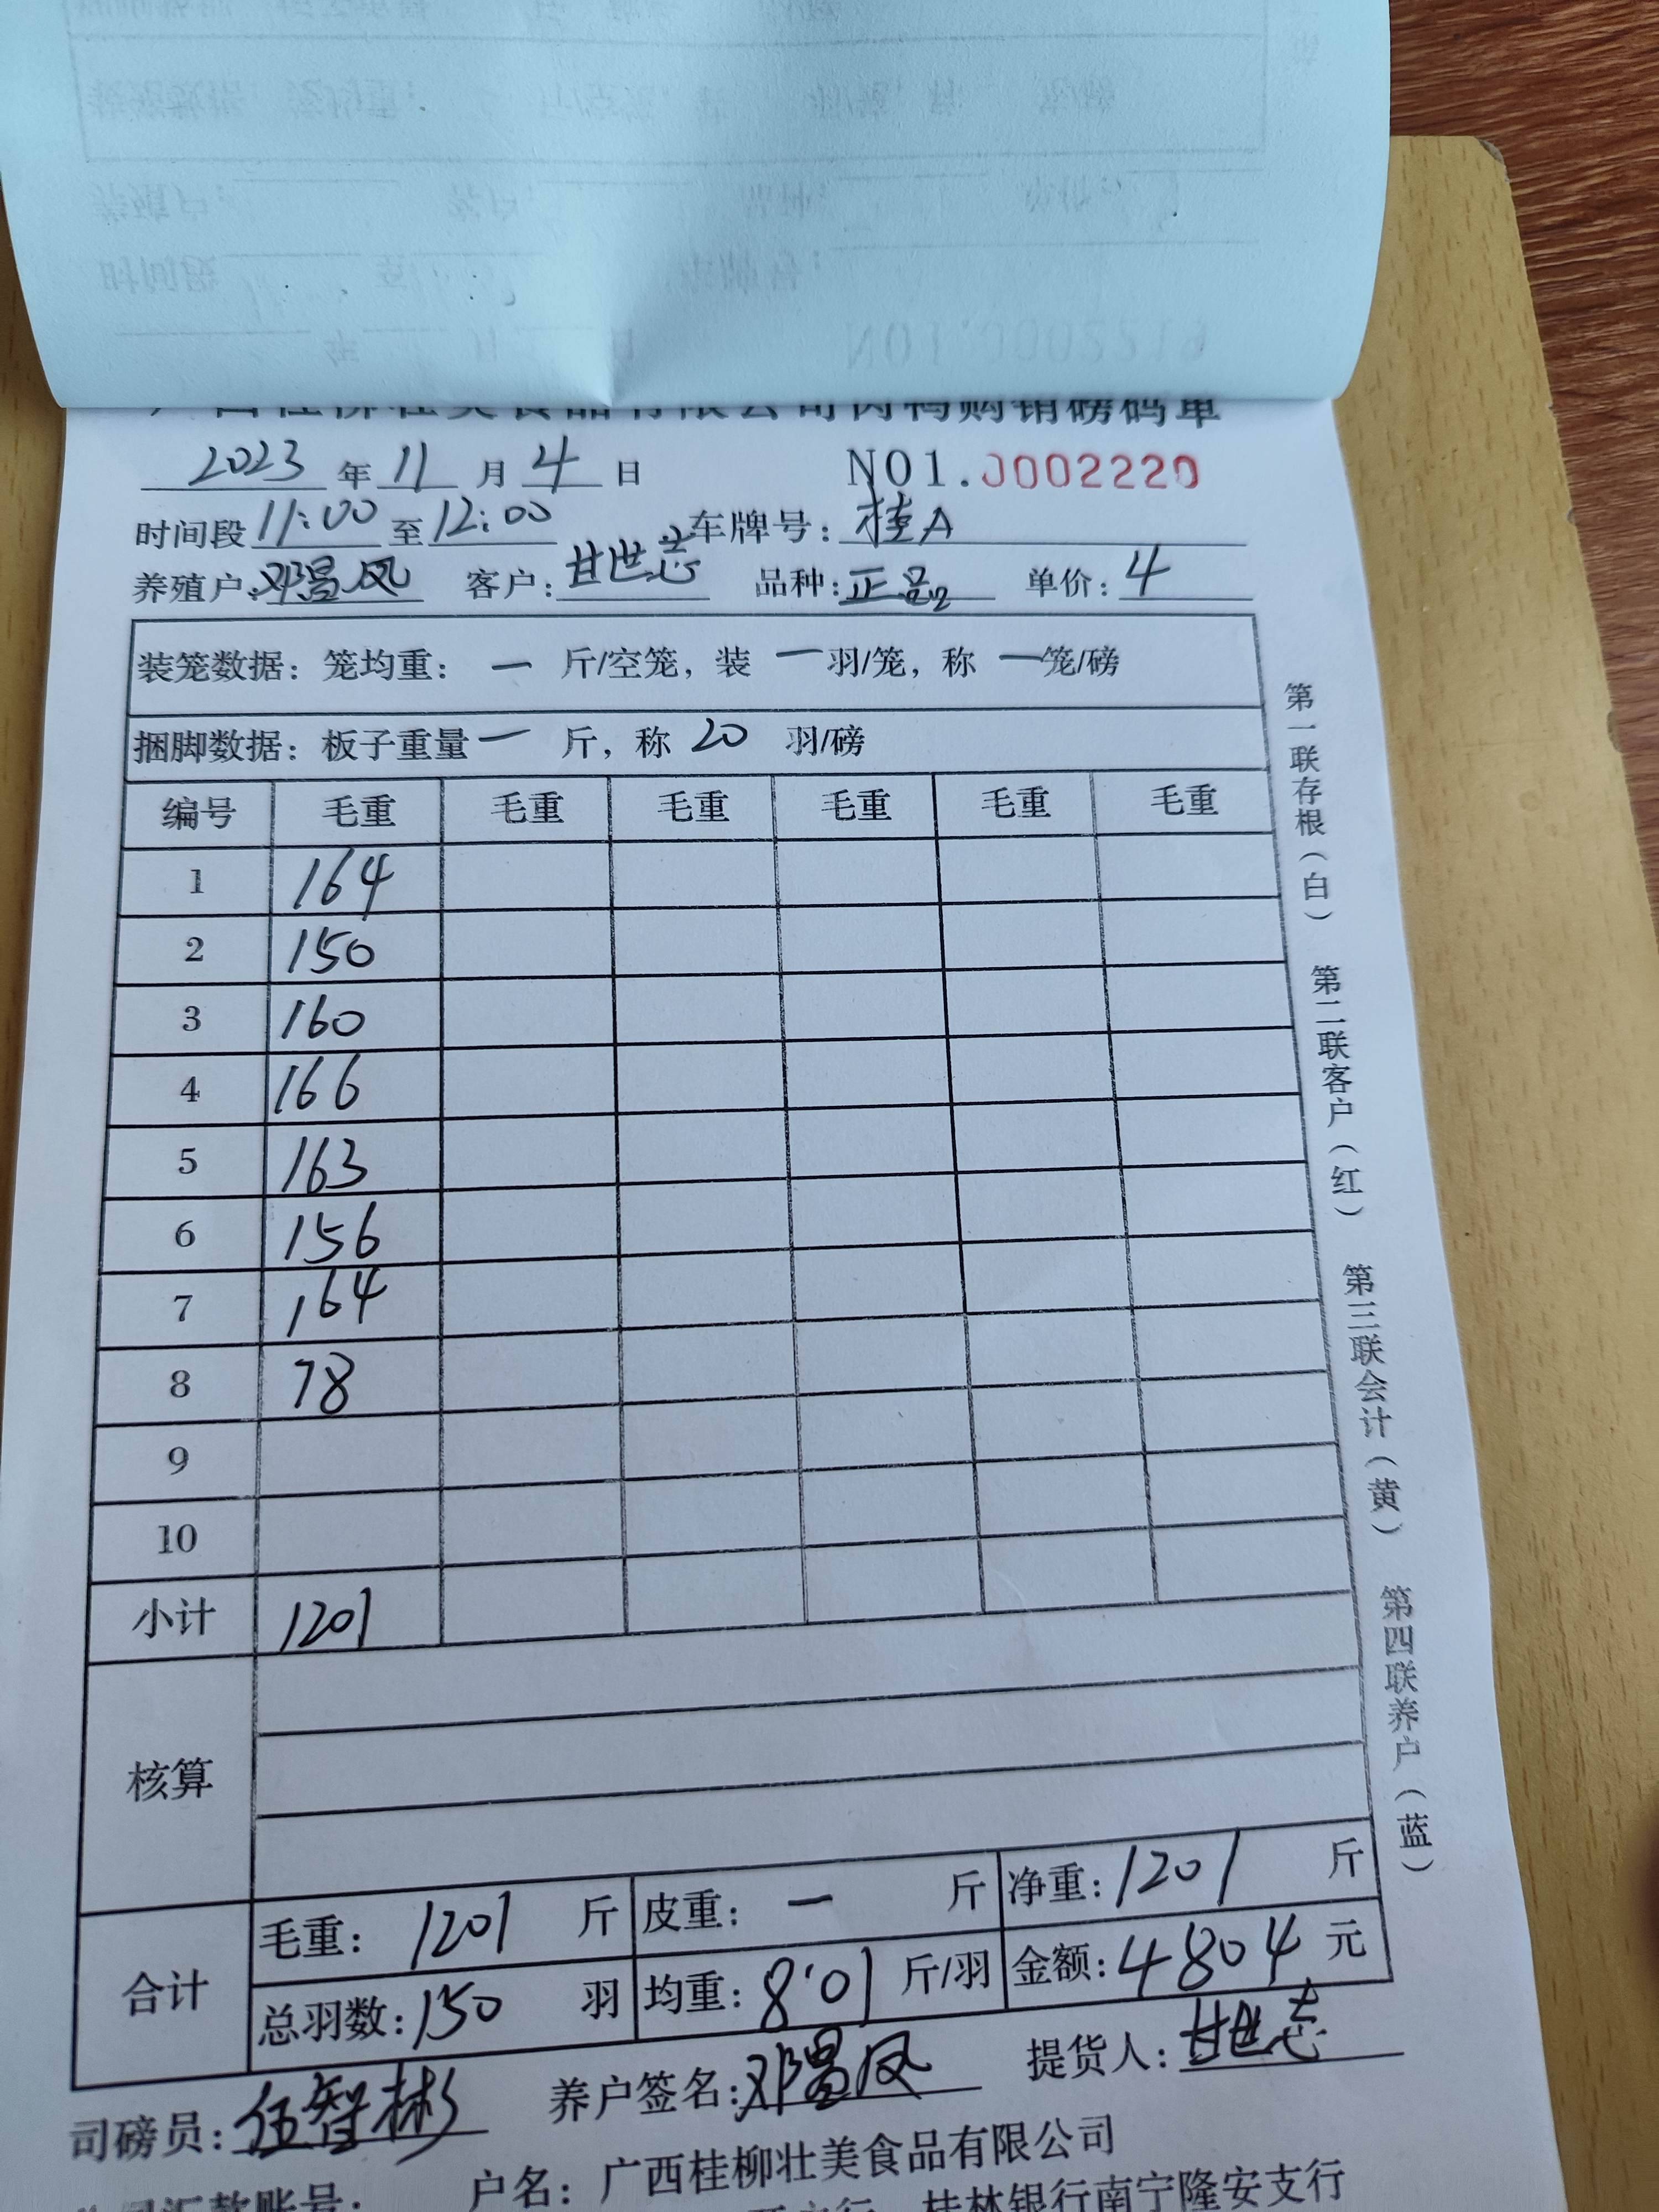 广西桂柳壮美食品有限公司肉鸭购销磅码单
2023年11月4日 NO1.0002220
时间段11:00至12:00 车牌号:桂A
养殖户:邓昌凤 客户:甘世志 品种:正品 单价:4
装笼数据:笼均重: 一 斤/空笼,装 一 羽/笼,称 一 笼/磅
捆脚数据:板子重量 一 斤,称 20 羽/磅
编号 毛重 毛重 毛重 毛重 毛重 毛重
1 164
2 150
3 160
4 166
5 163
6 156
7 164
8 78
9
10
小计 1201
核算
合计
毛重: 1201 斤 皮重: 一 斤 净重: 1201 斤
总羽数: 150 羽 均重: 8.01 斤/羽 金额: 4804 元
司磅员:伍智彬 养户签名:邓昌凤 提货人:甘世志
户名:广西桂柳壮美食品有限公司
汇款账号:
开户行:桂林银行南宁隆安支行
第一联存根(白) 第二联客户(红) 第三联会计(黄) 第四联养户(蓝)